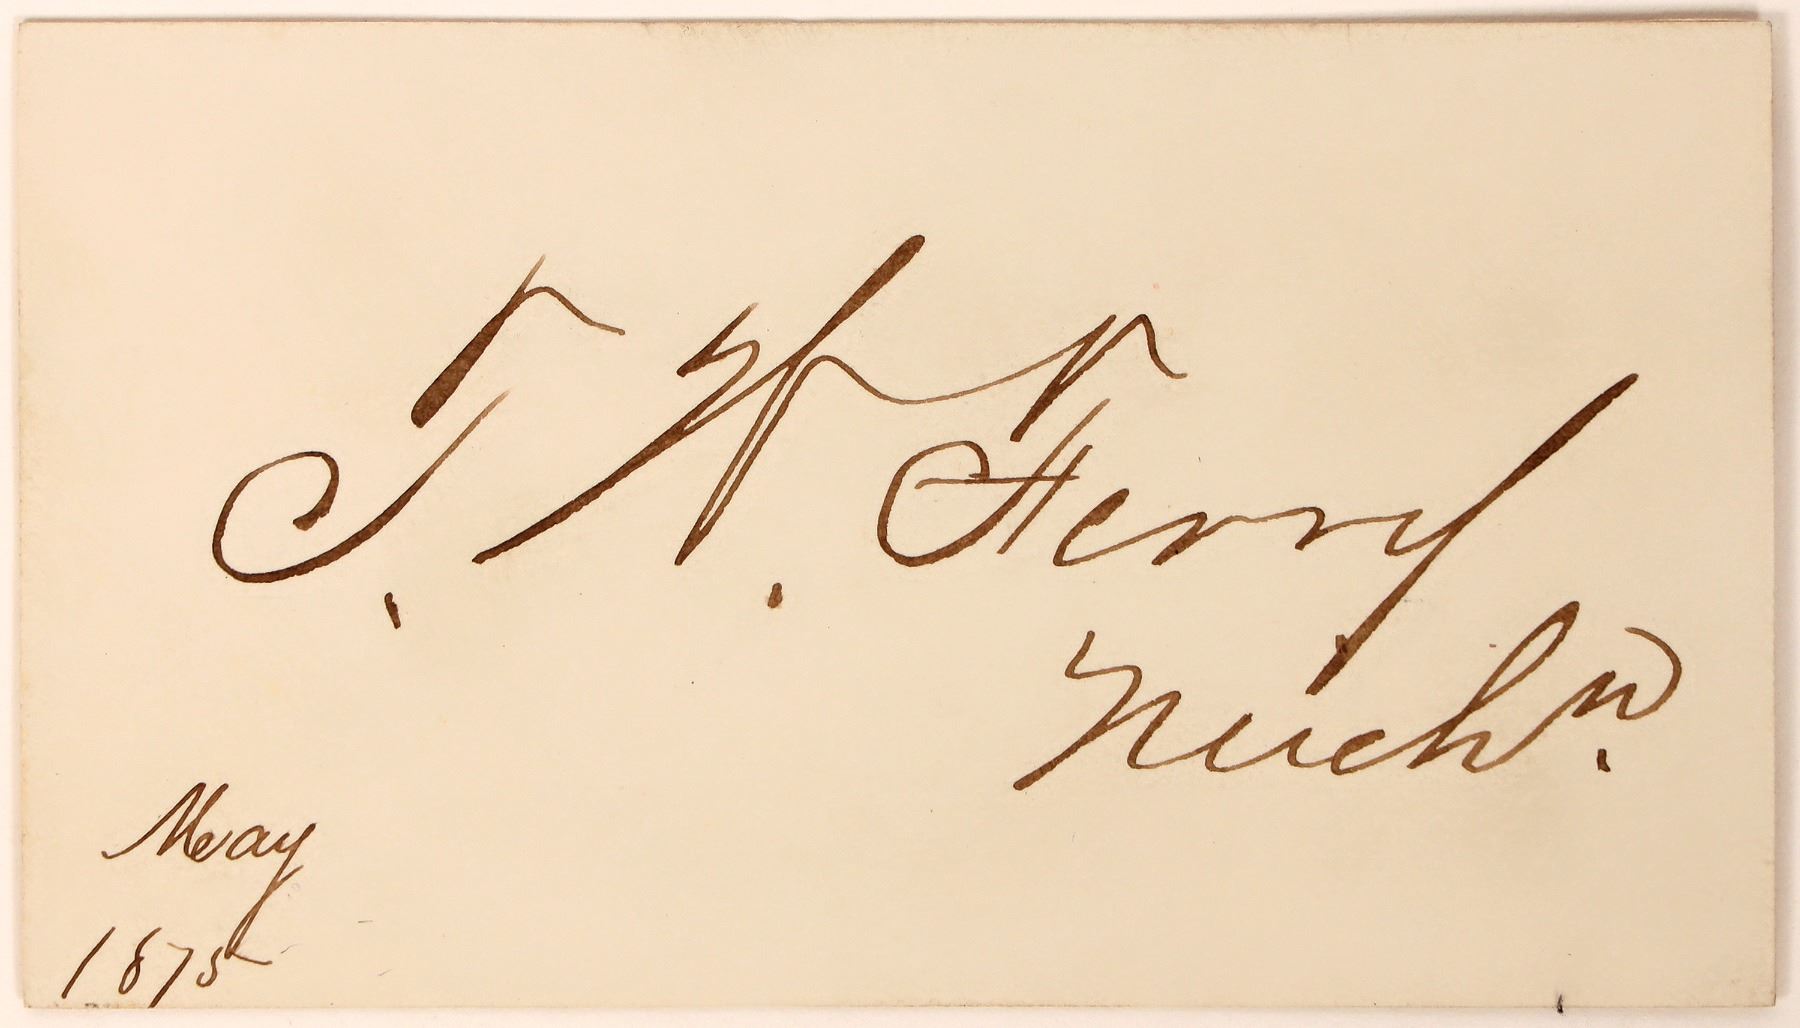 T. W. Ferry
Michn.
May
1875